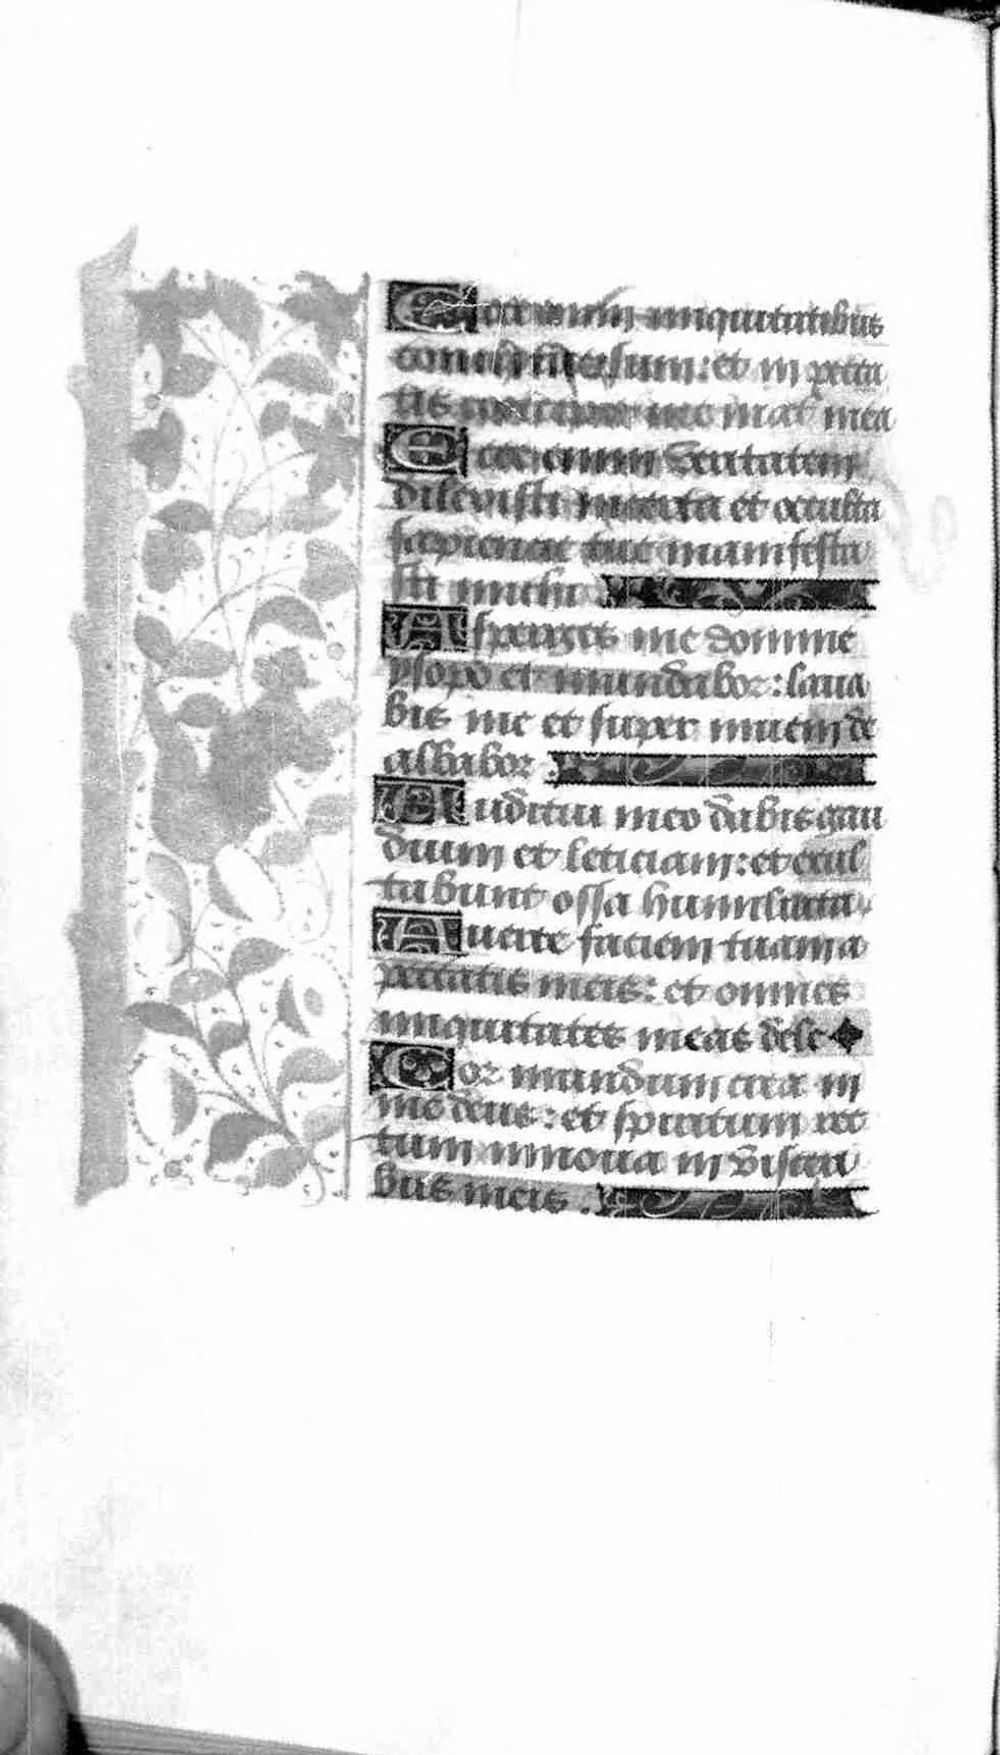 Ecce enim iniquitatibus
conceptus sum: et in pecca
tis concepit me mat mea
Ecce enim veritatem
dilexisti incerta et occulta
sapiencie tue manifesta
sti michi.
Asperges me domine
ysopo et mundabor: laua
bis me et super niuem de
albabor.
Auditui meo dabis gau
dium et leticiam: et exul
tabunt ossa humiliata.
Auerte faciem tuam a
peccatis meis: et omnes
iniquitates meas dele
Cor mundum crea in
me deus: et spiritum rec
tum innoua in visceri
bus meis.